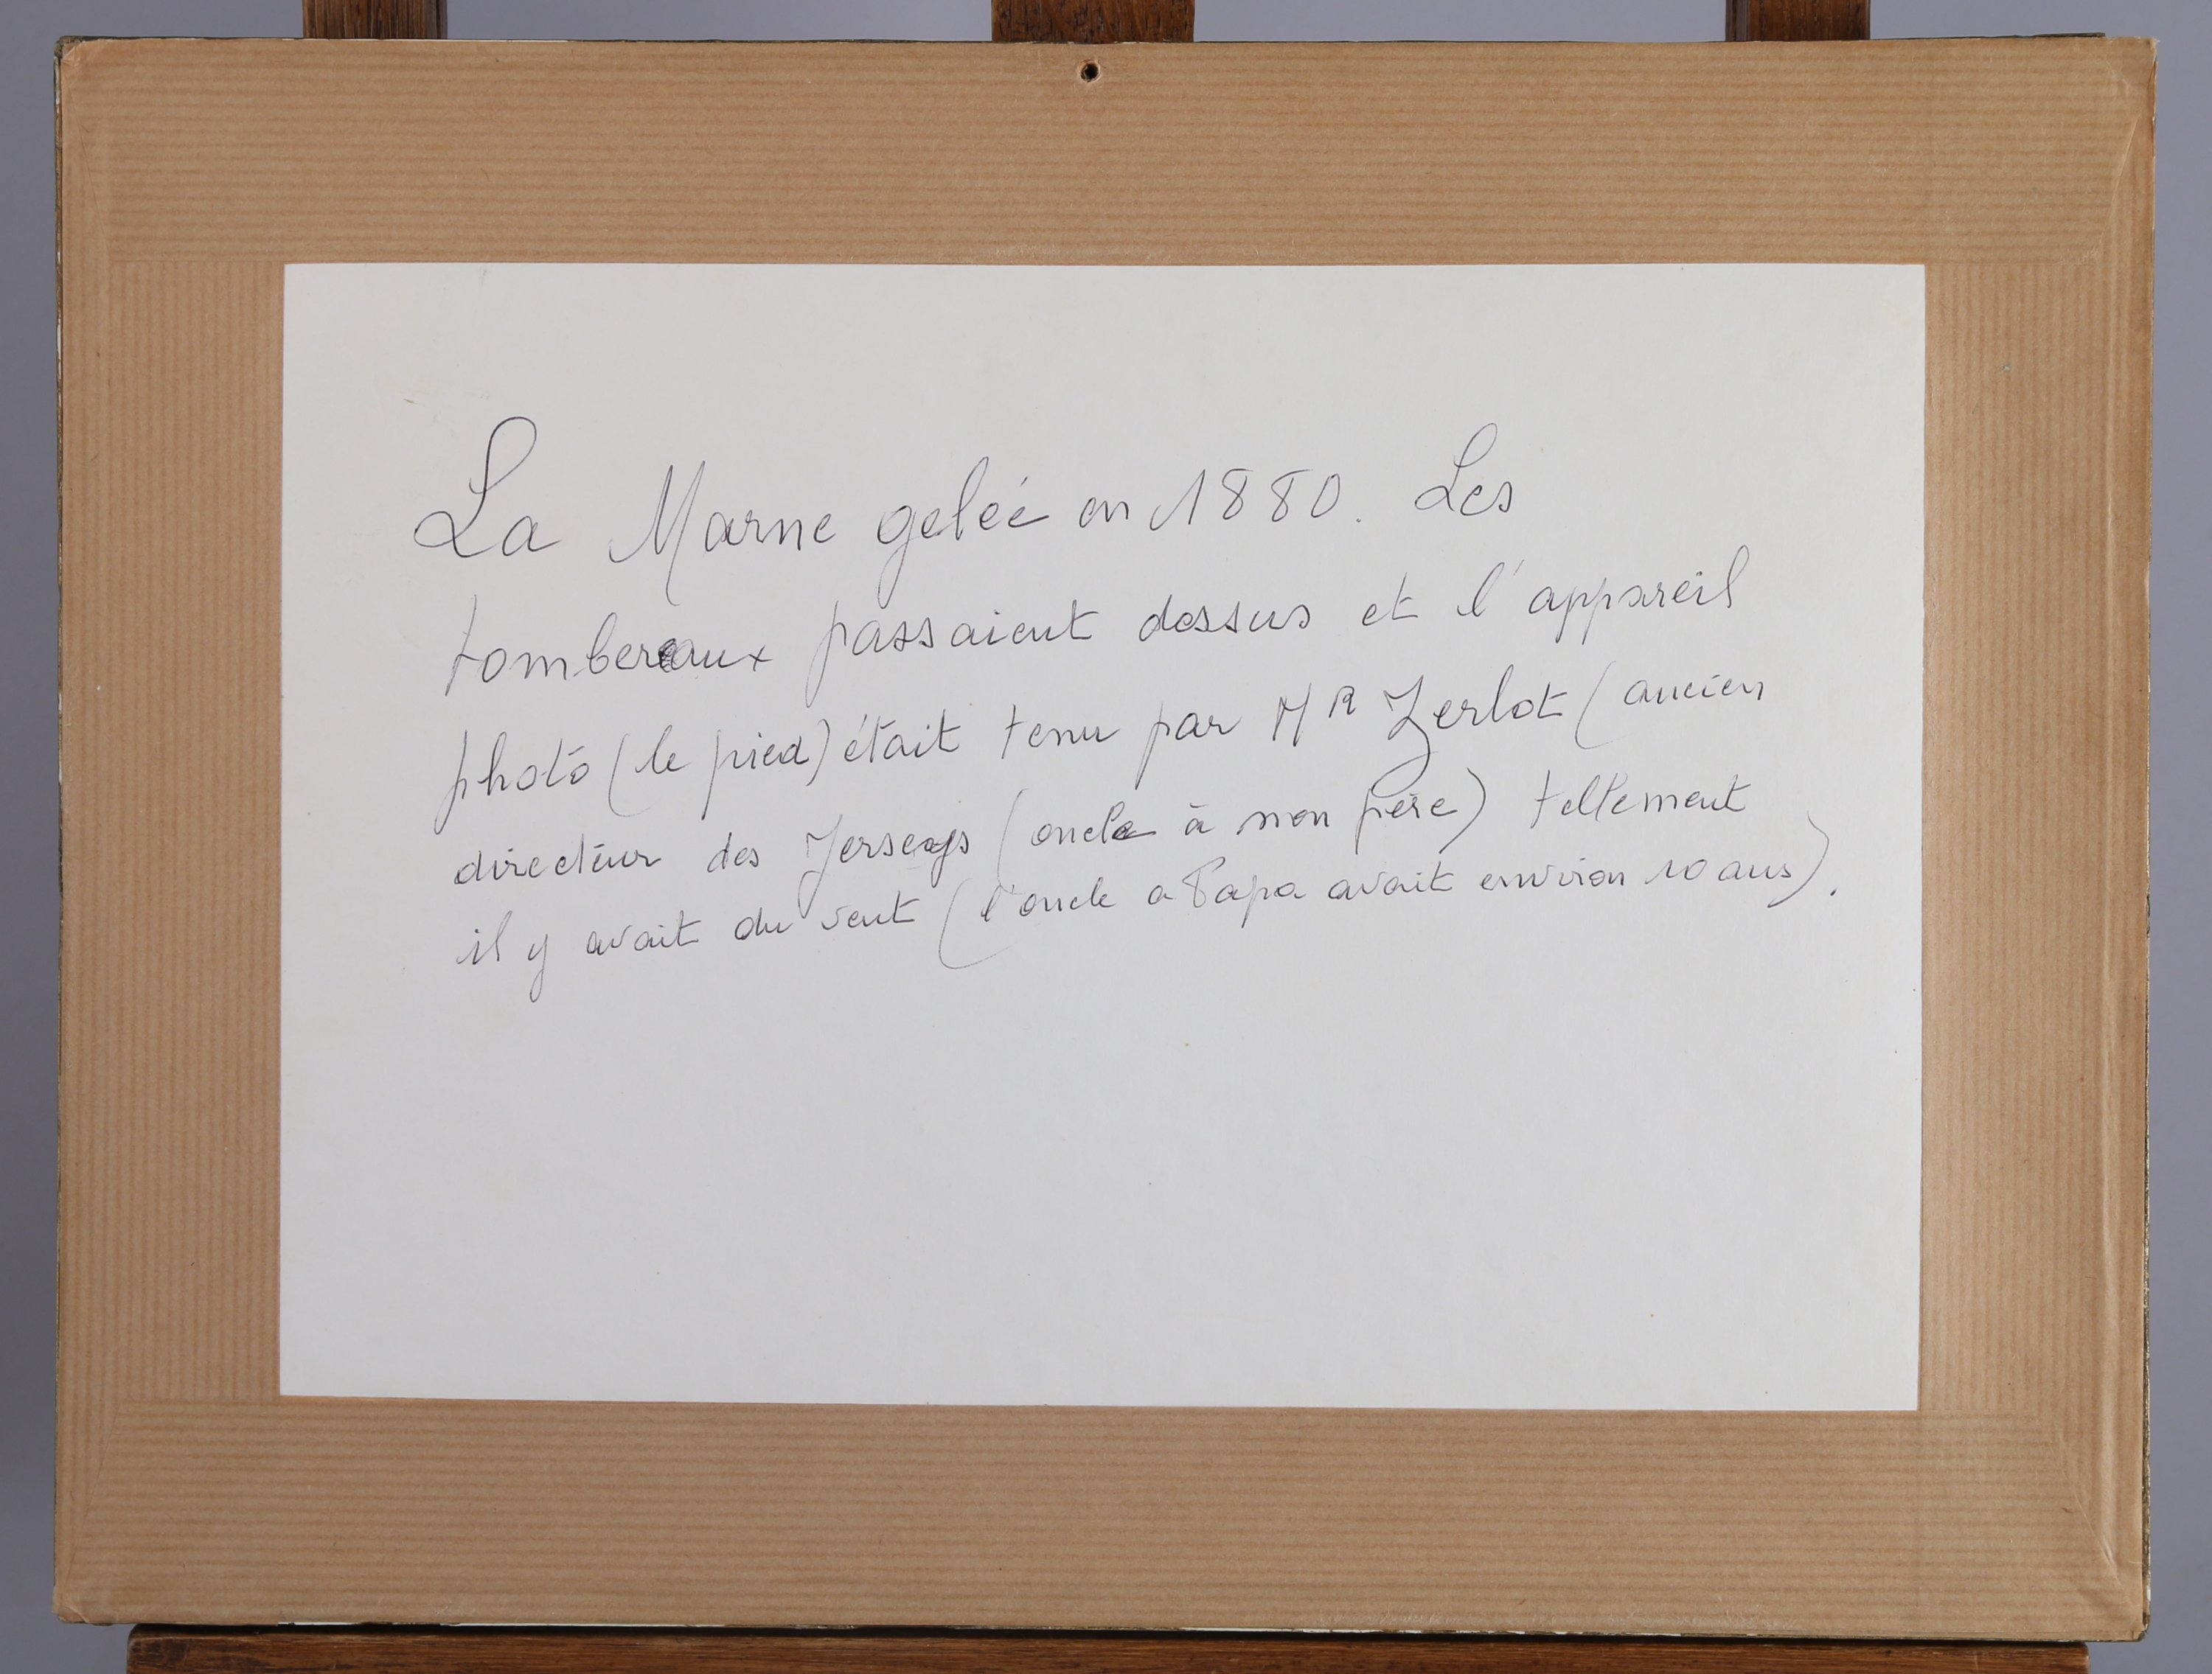 La Marne gelée en 1880. Les
tombereaux passaient dessus et l'appareil
photo (le pied) était tenu par MR Zerlot (ancien
directeur des Jerseys (oncle à mon père) tellement
il y avait du vent (l'oncle a Papa avait environ 10 ans).